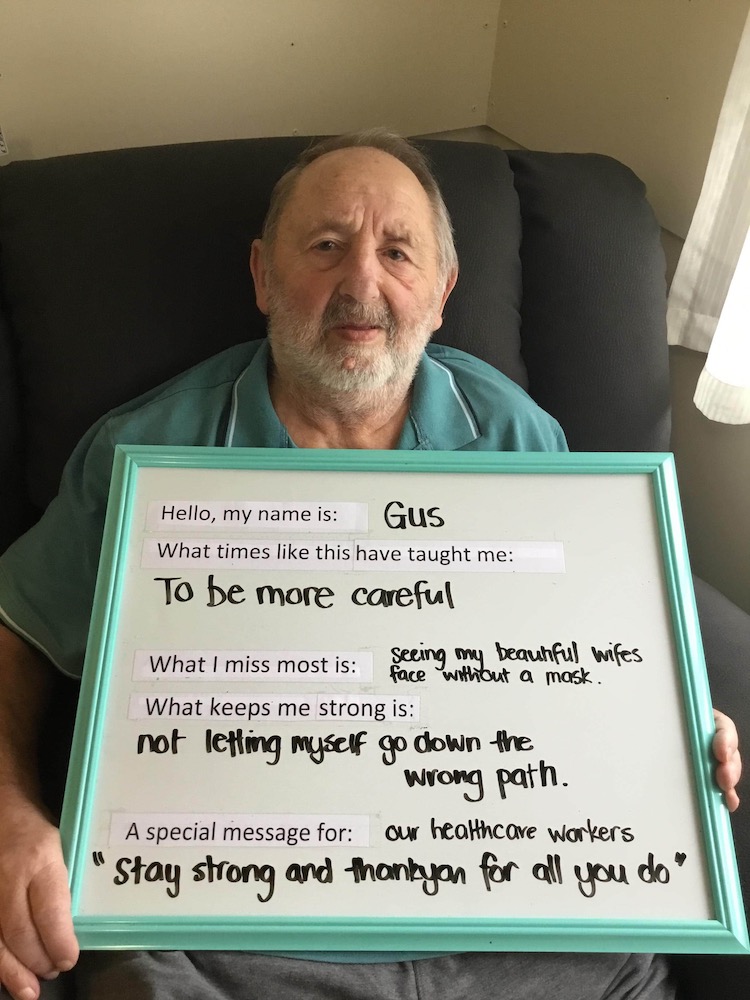 Hello, my name is: Gus
What times like this have taught me:
To be more careful
What I miss most is: seeing my beautiful wifes
face without a mask.
What keeps me strong is:
not letting myself go down the
wrong path.
A special message for: our healthcare workers
"Stay strong and thankyou for all you do"